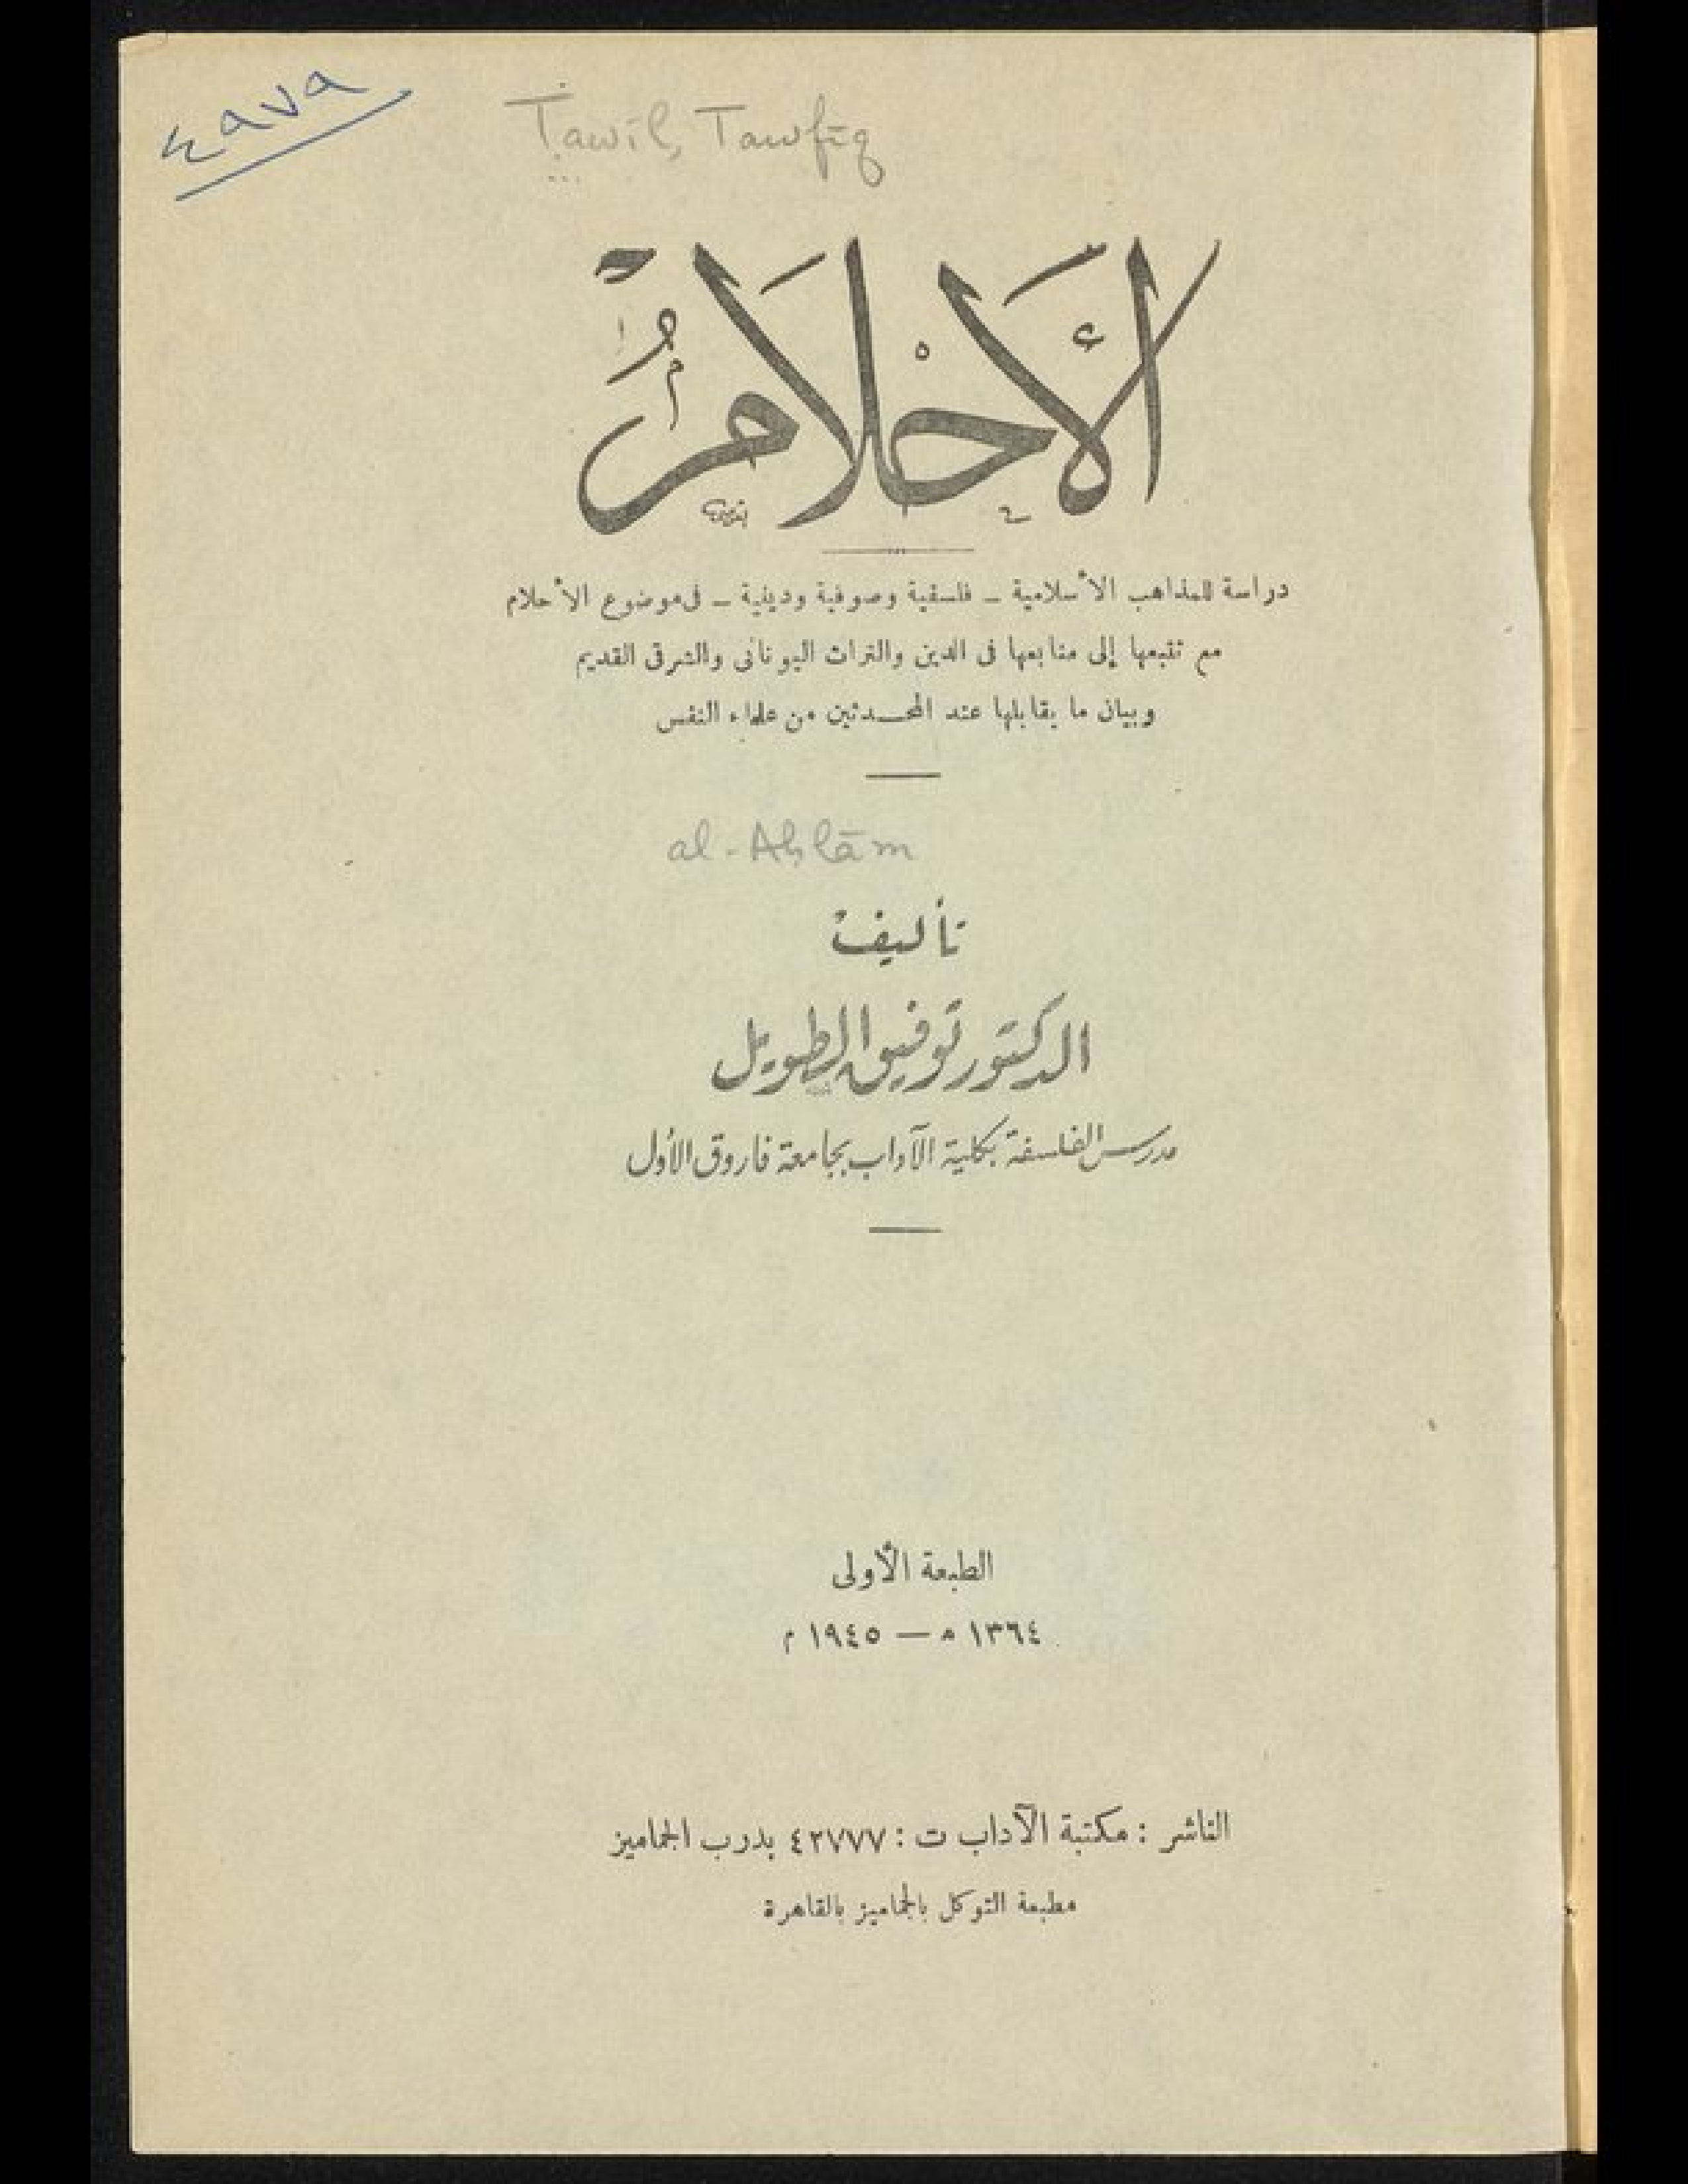 ٤٩٧٩
Ṭawīl, Tawfīq
الأَحْلَامُ
دراسة للمذاهب الأسلامية – فلسفية وصوفية ودينية – فى موضوع الأحلام
مع تتبعها إلى منابعها فى الدين والتراث اليونانى والشرقى القديم
وبيان ما يقابلها عند المحدثين من علماء النفس
al-Aḥlām
تأليف
الدكتور توفيق الطويل
مدرس الفلسفة بكلية الآداب بجامعة فاروق الأول
الطبعة الأولى
١٣٦٤ ه — ١٩٤٥ م
الناشر : مكتبة الآداب ت : ٤٢٧٧٧ بدرب الجماميز
مطبعة التوكل بالجماميز بالقاهرة